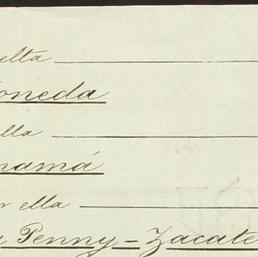 elta
oneda
lla
namá
r ella
Penny - Zacate